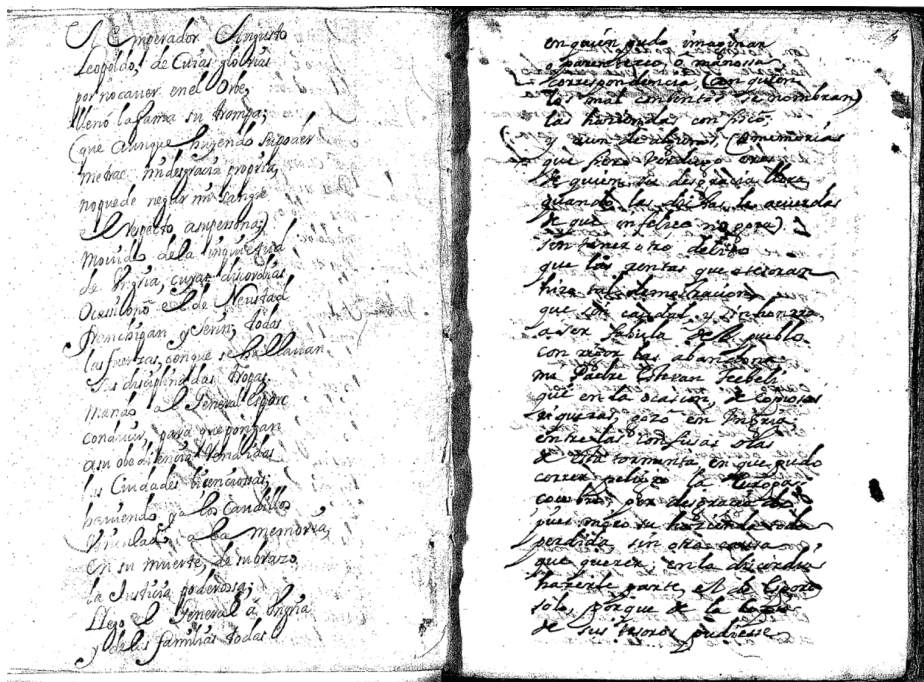 El Emperador Augusto
Leopoldo, de Cuias glorias
por no caver en el Orbe,
llenó la fama su trompa;
(que aunque huyendo
me trae mi desgracia propria,
no puede negar mi sangre
el respeto a su persona;)
movido de la inquietud
de Vngria, cuyas discordias
el de Neustad
y Serin, todas
las fuerzas, con que se hallavan
sus disciplinadas tropas
mandó al General
conducir, para que pongan
a su obediencia rendidas
las Ciudades licenciosas,
haviendo ya los Caudillos
a la memoria,
en su muerte, de su brazo
la Justicia poderosa;
Llego el General á Vngria
y de las familias todas
en quien pudo imaginar
o parentesco, o mañosa
correspondencia, (con quien
los mal contentos se nombran)
las haziendas
y aun de algunos, (o memorias
que
de quien su desgracia llora,
quando las dichas le acuerdas
de que infeliz no goza)
sin tener otro delito
que las rentas que atesoran
hizo tal demostracion,
que sin caudal, y sin honrra
a ser fabula del pueblo
con rigor las abandona
mi Padre Estevan Tekeli
que en la ocasion, de copiosas
riquezas, gozó en Vngria,
entre las confusas olas
de esta tormenta, en que pudo
correr peligro la Europa,
por desgracia
pues miro su hazienda toda
perdida, sin otra causa
que querer, en la discordia
hazerle parte, el de
solo, porque de la
de sus tesoros pudiesse